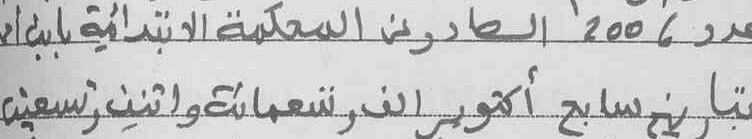 عدد 2006 الصادر عن المحكمة الابتدائية بابن أحمد
بتاريخ سابع أكتوبر الف وتسعمائة واثنين وتسعين